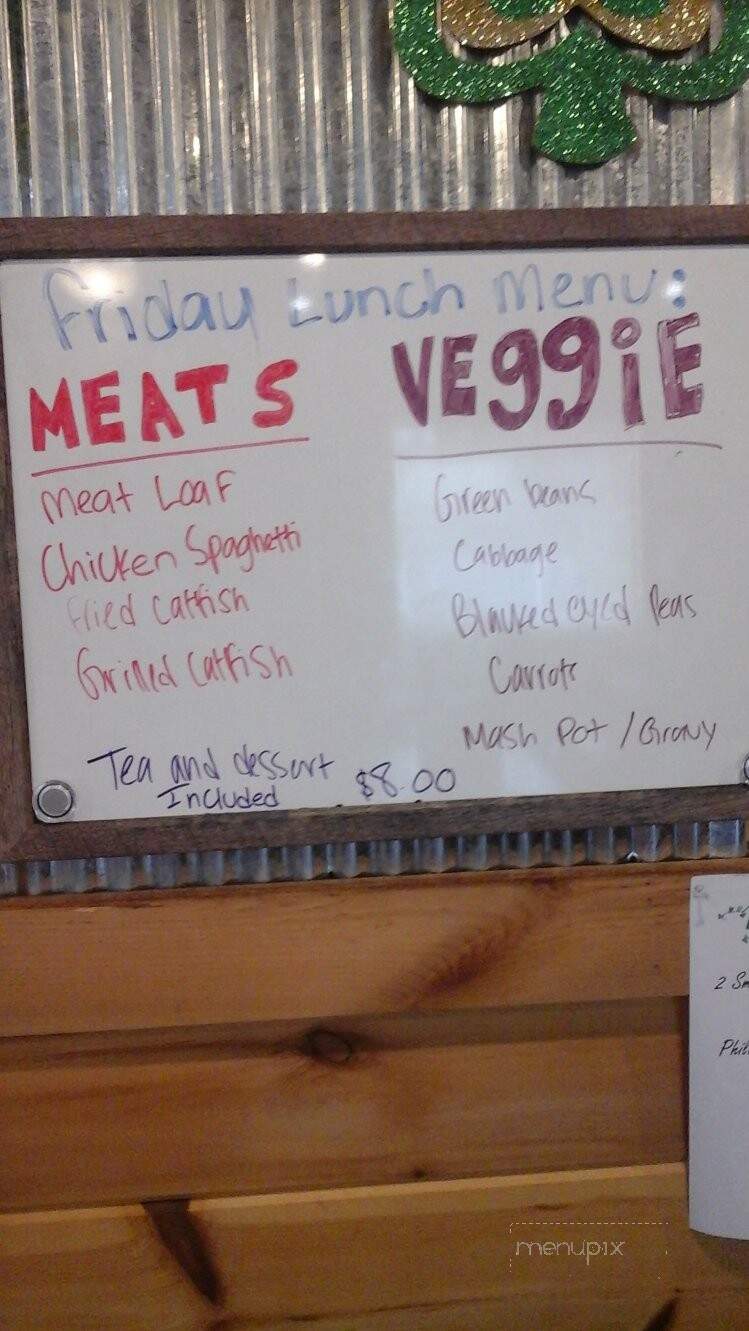 Friday Lunch Menu:
MEATS
Meat Loaf
Chicken Spaghetti
Fried Catfish
Grilled Catfish
VEggiE
Green beans
Cabbage
Carrots
Mash Pot / Gravy
Tea and dessert
Included
$8.00
2 Sm
Phil
menupix